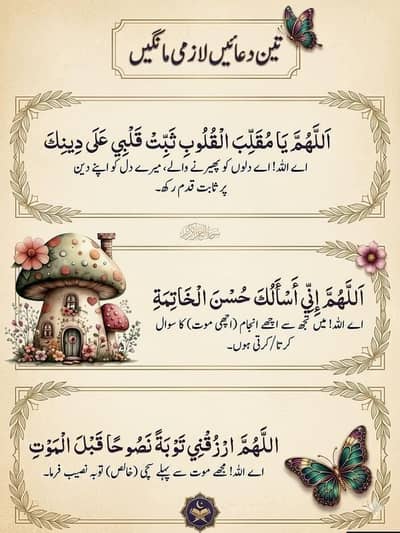 تین دعائیں لازمی مانگیں
اَللَّهُمَّ يَا مُقَلِّبَ الْقُلُوبِ ثَبِّتْ قَلْبِي عَلَى دِينِكَ
اے اللہ! اے دلوں کو پھیرنے والے، میرے دل کو اپنے دین
پر ثابت قدم رکھ۔
اَللَّهُمَّ إِنِّي أَسْأَلُكَ حُسْنَ الْخَاتِمَةِ
اے اللہ! میں تجھ سے اچھے انجام (اچھی موت) کا سوال
کرتا/کرتی ہوں۔
اللَّهُمَّ ارْزُقْنِي تَوْبَةً نَصُوحًا قَبْلَ الْمَوْتِ
اے اللہ! مجھے موت سے پہلے سچی (خالص) توبہ نصیب فرما۔